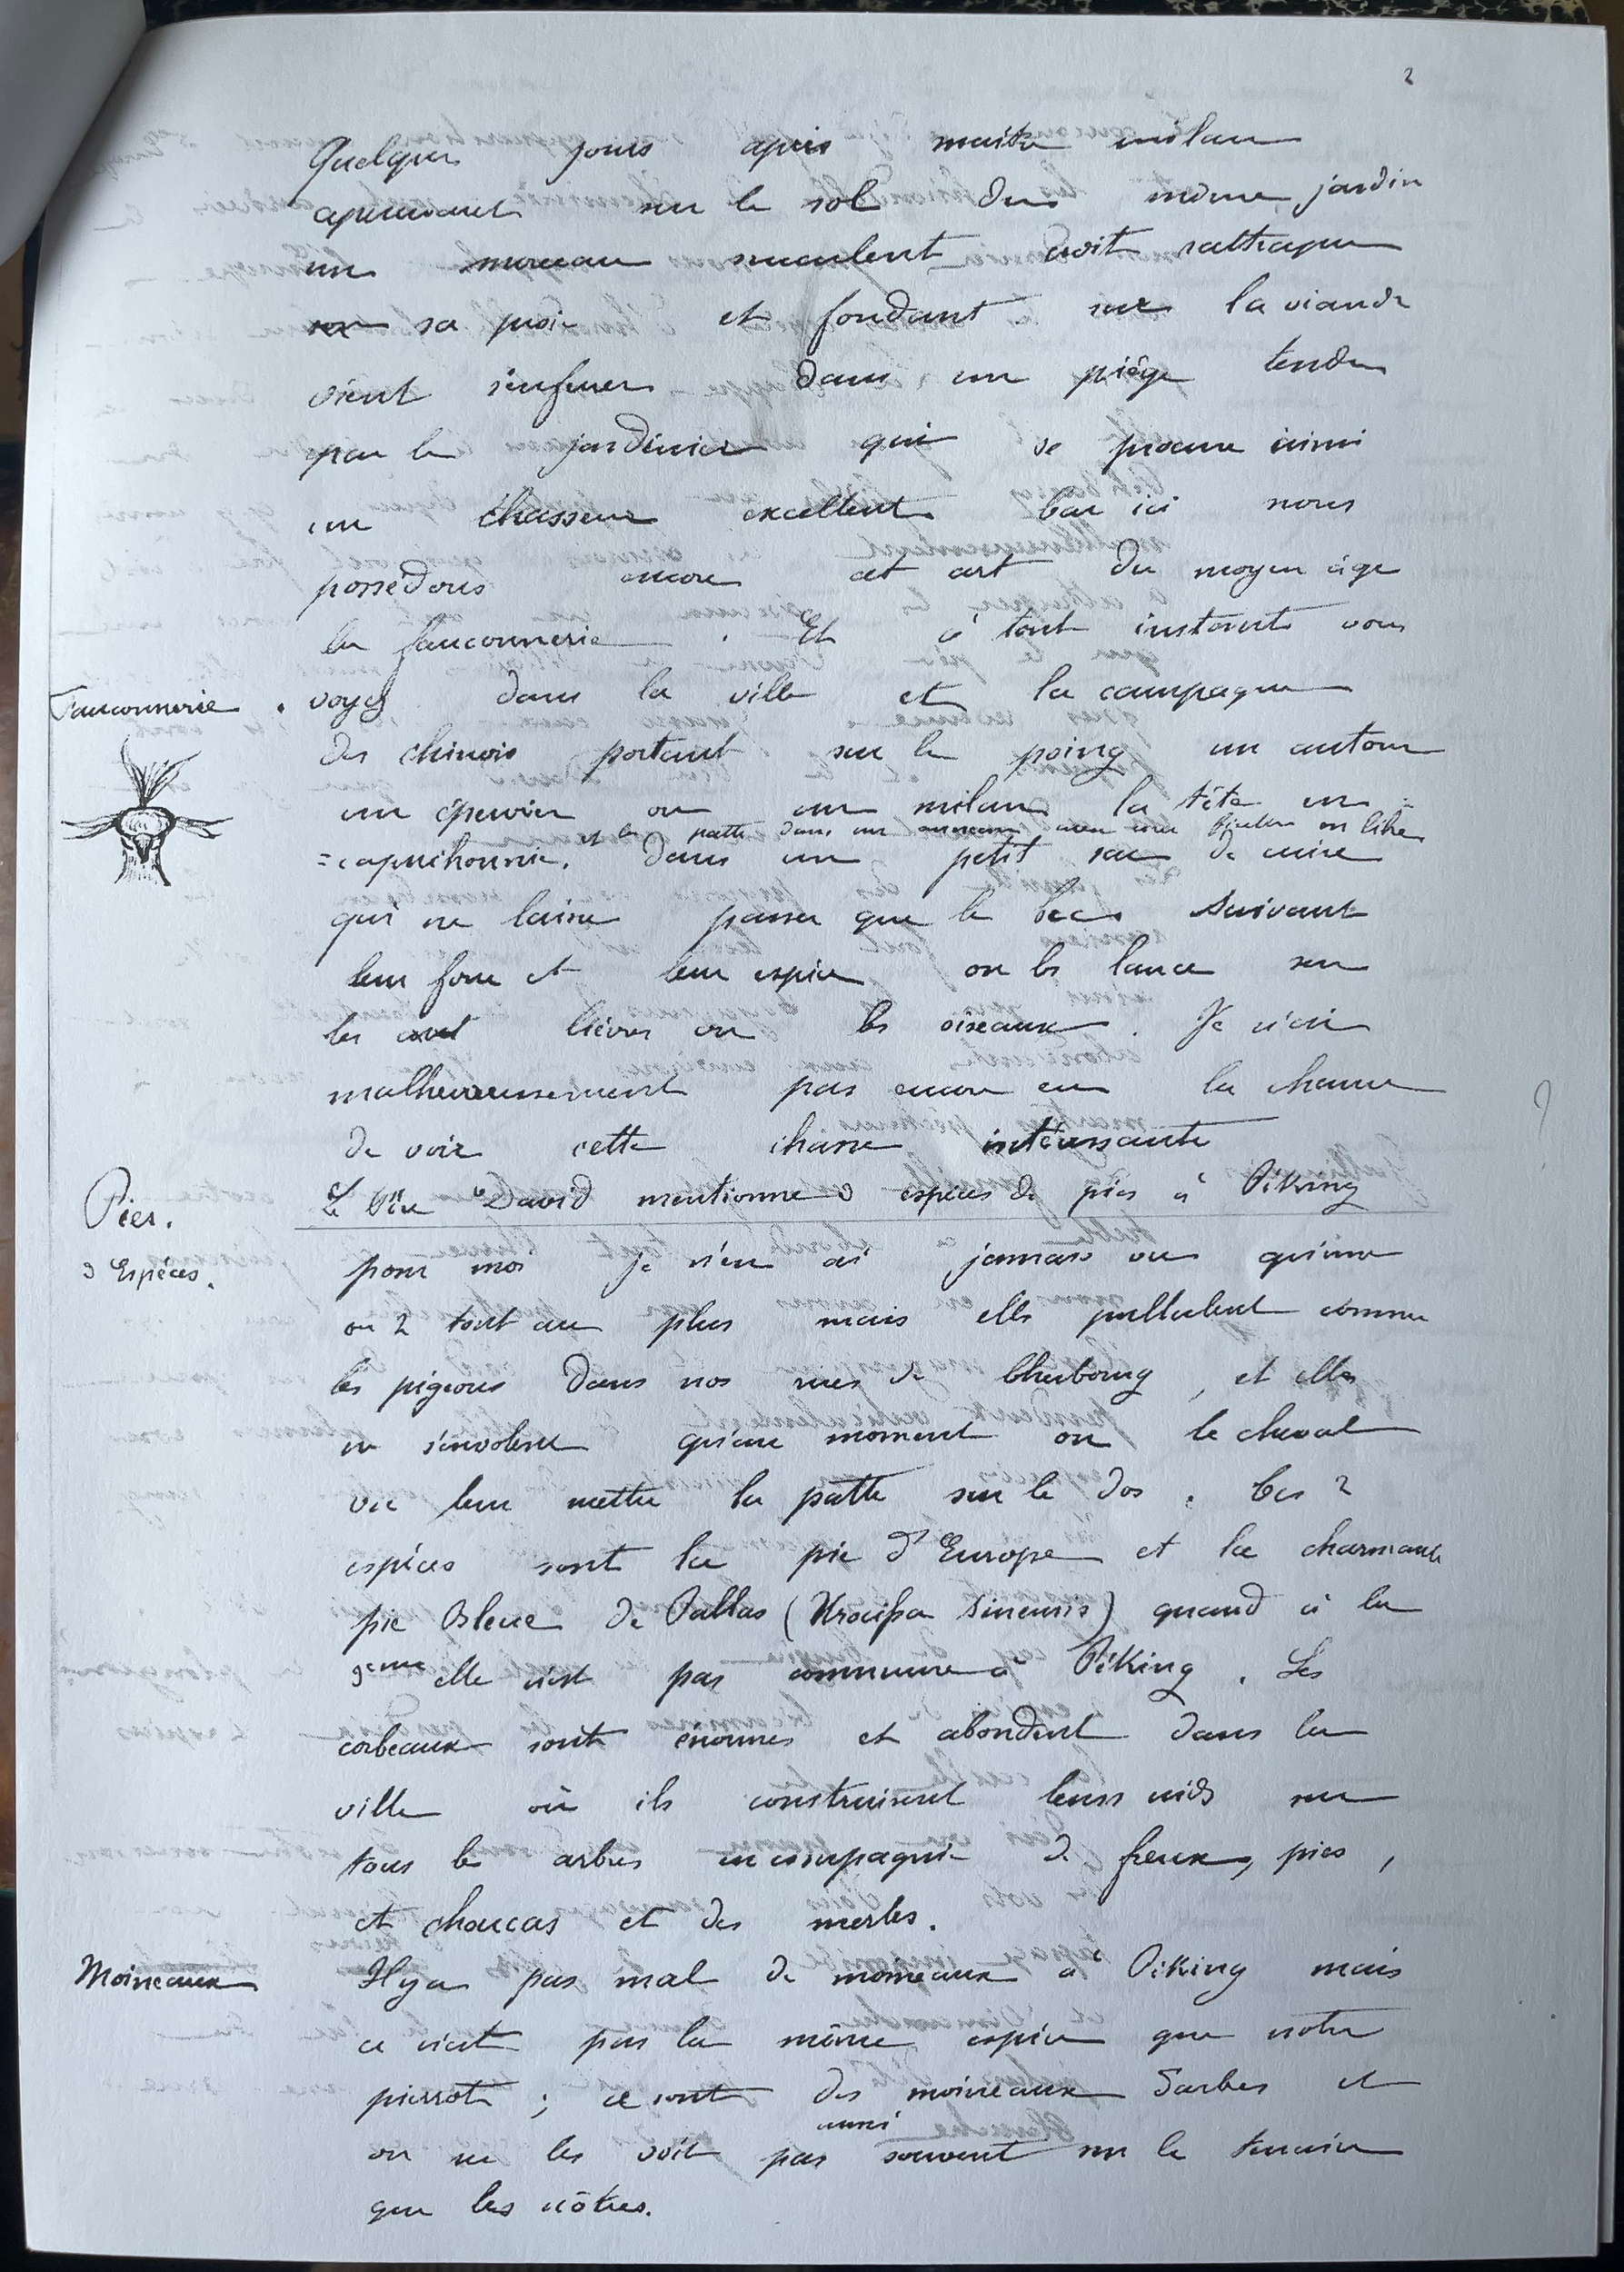 2
Quelques jours après maître milan
apercevant sur le sol du même jardin
un morceau succulent croit rattraper
sa proie et fondant sur la viande
vient s'enferrer dans un piège tendu
par le jardinier qui se procure ainsi
un chasseur excellent. Car ici nous
possédons encore cet art du moyen âge
la fauconnerie. Et à tout instant vous
Fauconnerie. voyez dans la ville et la campagne
des chinois portant sur le poing un autour
un épervier ou un milan la tête en=
et la patte dans un anneau avec une
=capuchonnée, dans un petit sac de cuir
qui ne laisse passer que le bec. Suivant
leur force et leur espèce on les lance sur
les lièvres ou les oiseaux. Je n'ai
malheureusement pas encore eu la chance
de voir cette chasse intéressante
Pies. Le Père David mentionne 3 espèces de pies à Péking
3 Espèces. pour moi je n'en ai jamais vu qu'une
ou 2 tout au plus mais elles pullulent comme
les pigeons dans nos rues de Cherbourg, et elles
ne s'envolent qu'au moment où le cheval
va leur mettre la patte sur le dos. Ces 2
espèces sont la pie d'Europe et la charmante
pie Bleue de Pallas (Urocissa Sinensis) quand à la
3eme elle n'est pas commune à Péking. Les
corbeaux sont énormes et abondent dans la
ville où ils construisent leurs nids sur
tous les arbres en compagnie de freux, pies,
et choucas et des merles.
Moineaux Il y a pas mal de moineaux à Péking mais
ce n'est pas la même espèce que notre
pierrot ; ce sont des moineaux Sarbes et
aussi
on ne les voit pas souvent sur le terrain
que les nôtres.